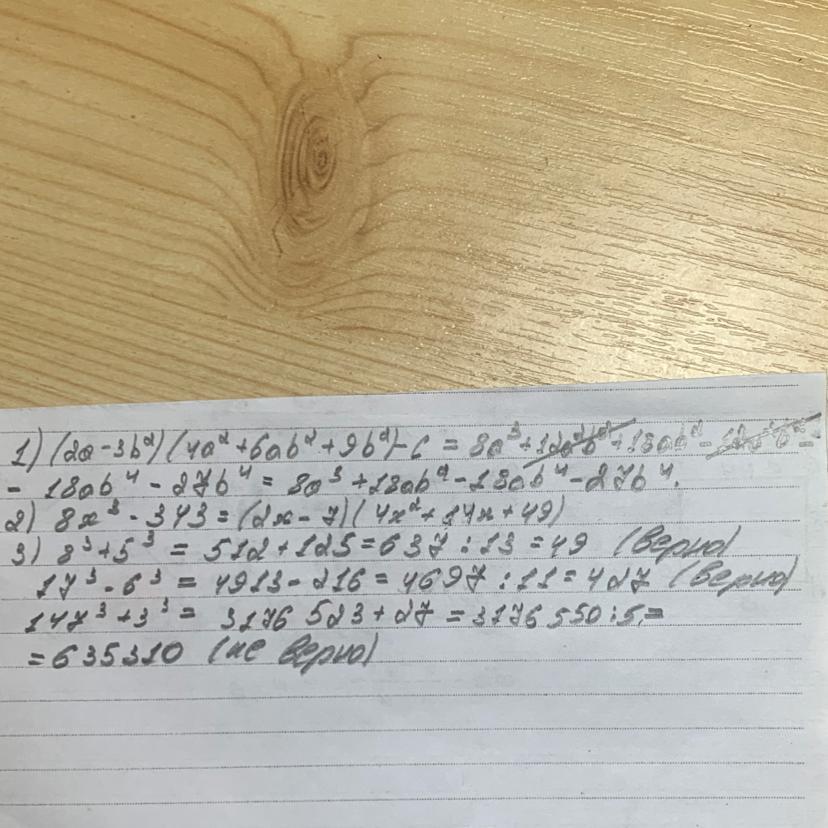 1) (2a-3b²)(4a²+6ab²+9b²)-6 = 8a³+12a²b²+18ab²-12a²b²-
- 18ab⁴ - 27b⁴ = 8a³+18ab²-18ab⁴-27b⁴.
2) 8x³-343=(2x-7)(4x²+14x+49)
3) 8³+5³ = 512+125=637:13=49 (верно)
17³-6³ = 4913-216=4697:11=427 (верно)
147³+3³= 3176 523+27=3176 550:5=
=635310 (не верно)